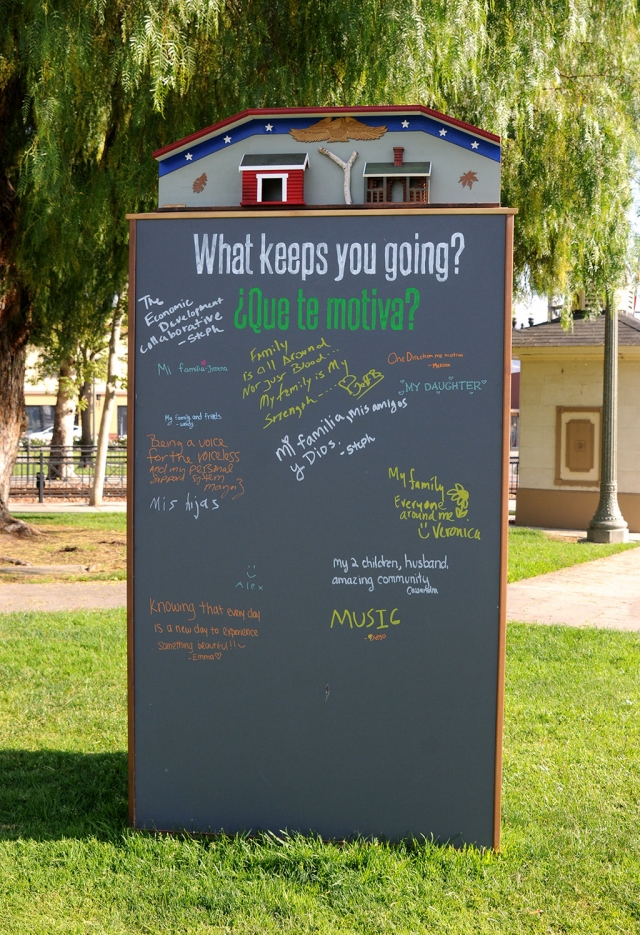 What keeps you going?
¿Que te motiva?
The
Economic
Development
Collaborative
- Steph
Mi familia - Jenna
Family
is all Around
Not just Blood...
My family is My
Strength....
BarB
One Direction me motiva
- Melissa
"MY DAUGHTER"
My family and friends
mi familia, mis amigos
y Dios. - steph
Being a voice
for the voiceless
and my personal
support system
Mis hijas
My family
Everyone
around me
Veronica
Alex
my 2 children, husband,
amazing community
Knowing that every day
is a new day to experience
something beautiful!!
- Emma♡
MUSIC